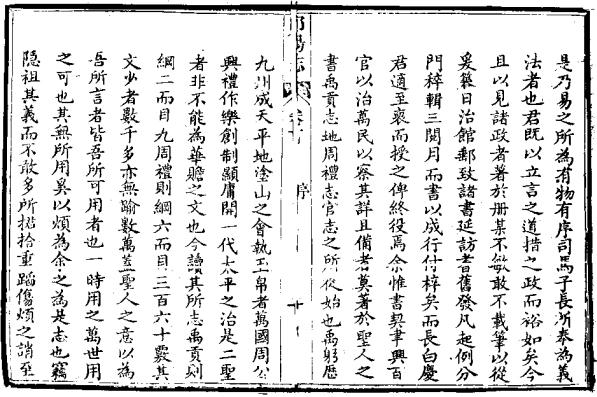 是乃易之所為有物有序司馬子長所奉為義
法者也君既以立言之道措之政而裕如矣今
且以見諸政者著於册某不敏敢不載筆以從
爰築日治館郵致諸書延訪耆舊發凡起例分
門稡輯三閱月而書以成行付梓矣而長白慶
君適至裒而授之俾終役焉余惟書契聿興百
官以治萬民以察其詳且備者莫著於聖人之
書禹貢志地周禮志官志之所從始也禹躬歷
序
九州成天平地塗山之會執玉帛者萬國周公
興禮作樂創制顯庸開一代太平之治是二聖
者非不能為華贍之文也今讀其所志禹貢則
綱二而目九周禮則綱六而目三百六十覈其
文少者數千多亦無踰數萬蓋聖人之意以為
吾所言者皆吾所可用者也一時用之萬世用
之可也其無所用奚以煩為余之為是志也竊
隱祖其義而不敢多所捃拾重蹈傷煩之誚至